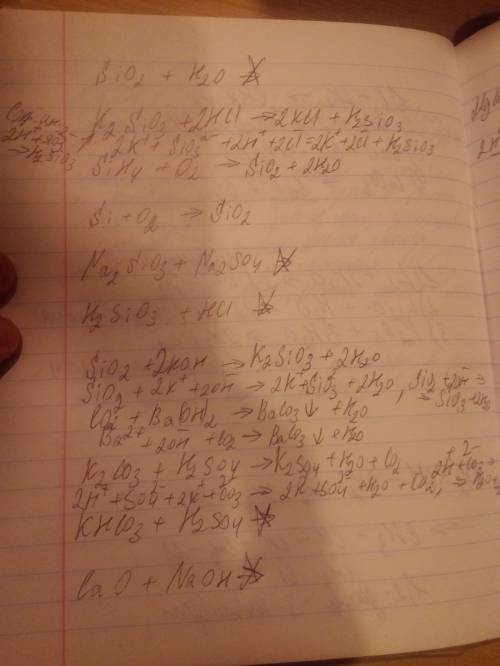 SiO2 + H2O
K2SiO3 + 2HCl → 2KCl + H2SiO3
2K⁺ + SiO3²⁻ + 2H⁺ + 2Cl⁻ = 2K⁺ + 2Cl⁻ + H2SiO3
→ H2SiO3
SiH4 + O2 → SiO2 + 2H2O
Si + O2 → SiO2
Na2SiO3 + Na2SO4
H2SiO3 + HCl
SiO2 + 2KOH → K2SiO3 + 2H2O
SiO2 + 2K⁺ + 2OH⁻ → 2K⁺ + SiO3²⁻ + 2H2O, SiO2 + 2OH⁻ =
→ SiO3 + 2H2O
CO2 + BaOH2 → BaCO3↓ + H2O
Ba²⁺ + 2OH⁻ + CO2 → BaCO3↓ + H2O
K2CO3 + H2SO4 → K2SO4 + H2O + CO2
2H⁺ + CO3²⁻ →
2H⁺ + SO4²⁻ + 2K⁺ + CO3²⁻ → 2K⁺ + SO4²⁻ + H2O + CO2,
KHCO3 + H2SO4
CaO + NaOH